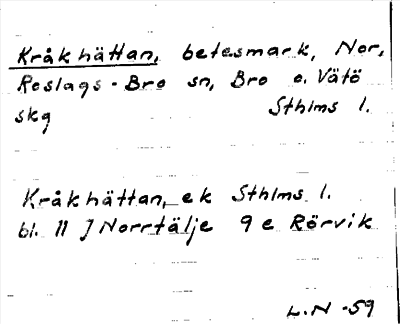 Kråkhättan, betesmark, Nor,
Roslags-Bro sn, Bro o. Vätö
skg Sthlms l.
Kråkhättan, ek Sthlms l.
bl. 11 J Norrtälje 9 e Rörvik
L.N -59